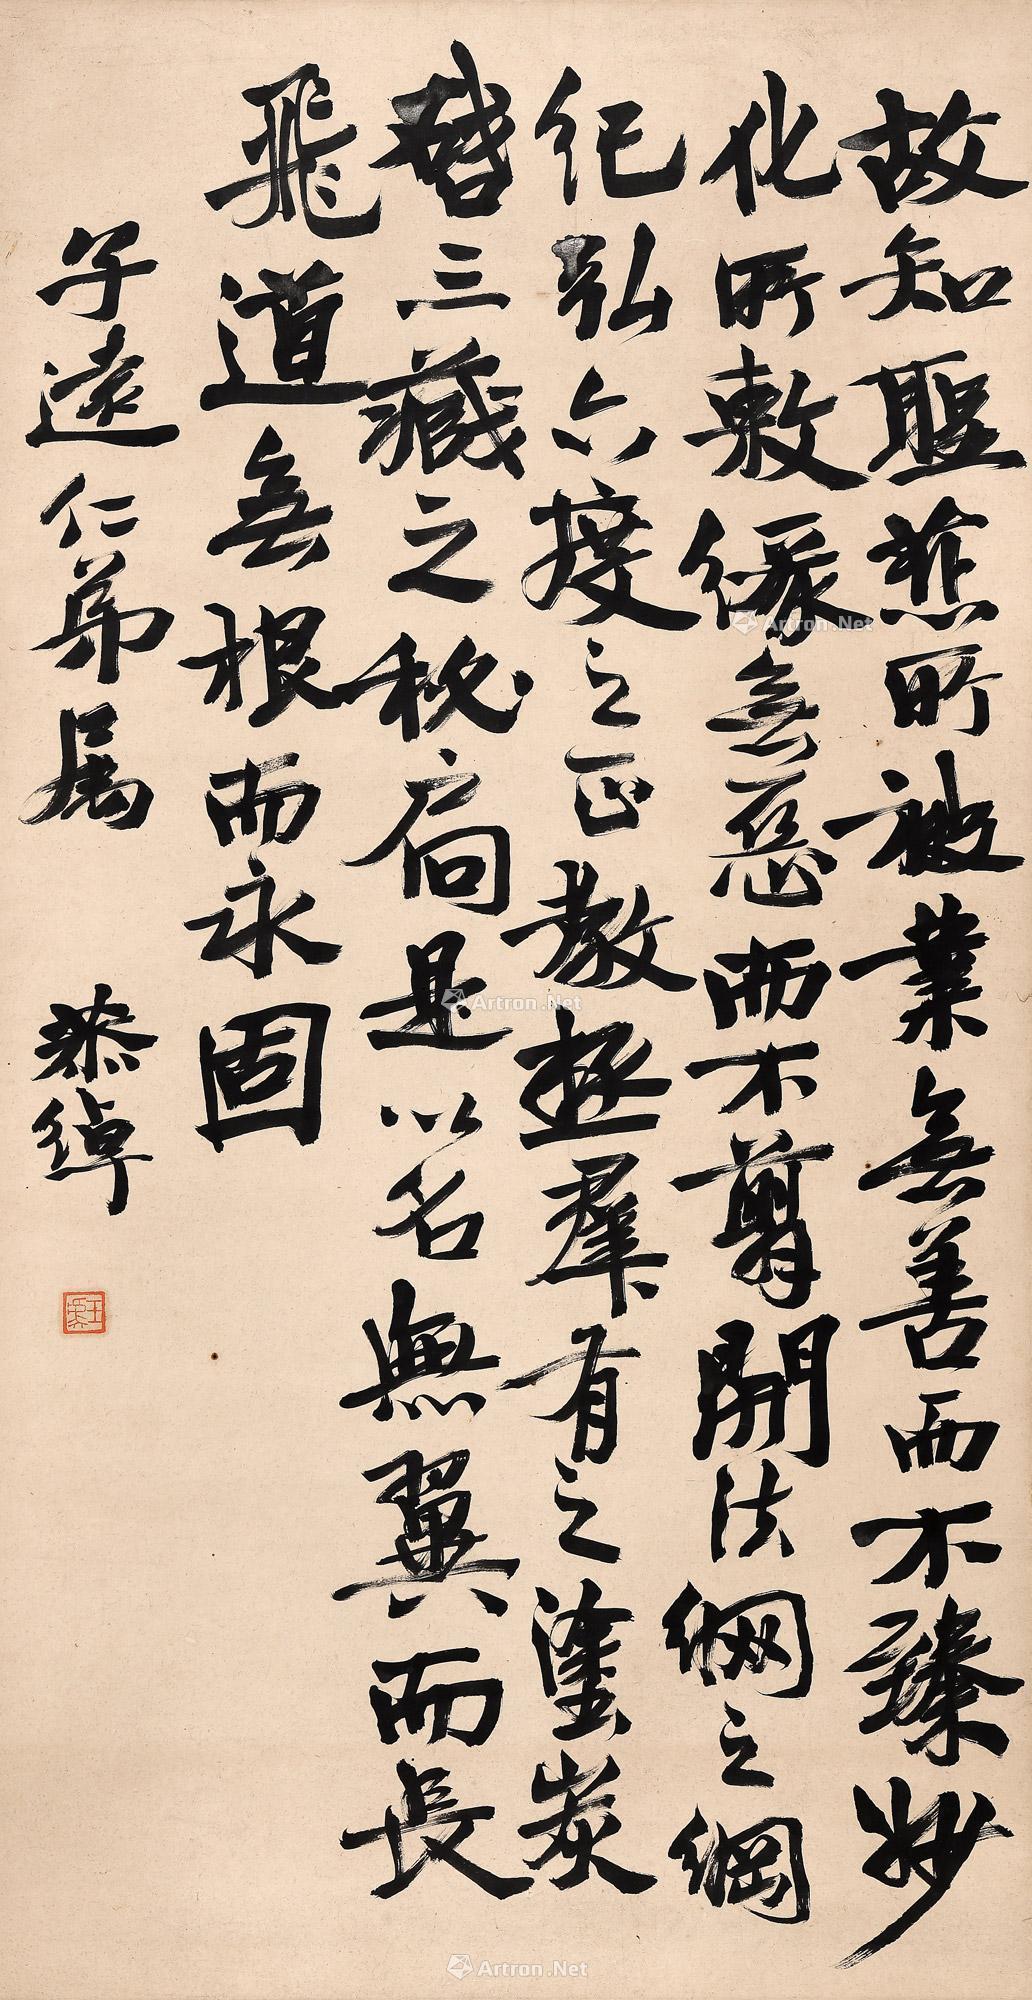 故知聖慈所被業無善而不臻妙
化所敷緣無惡而不翦開法網之綱
紀弘六度之正教拯羣有之塗炭
啓三藏之秘扃是以名無翼而長
飛道無根而永固
子遠仁弟属
Artron.Net
Artron.Net
Artron.Net